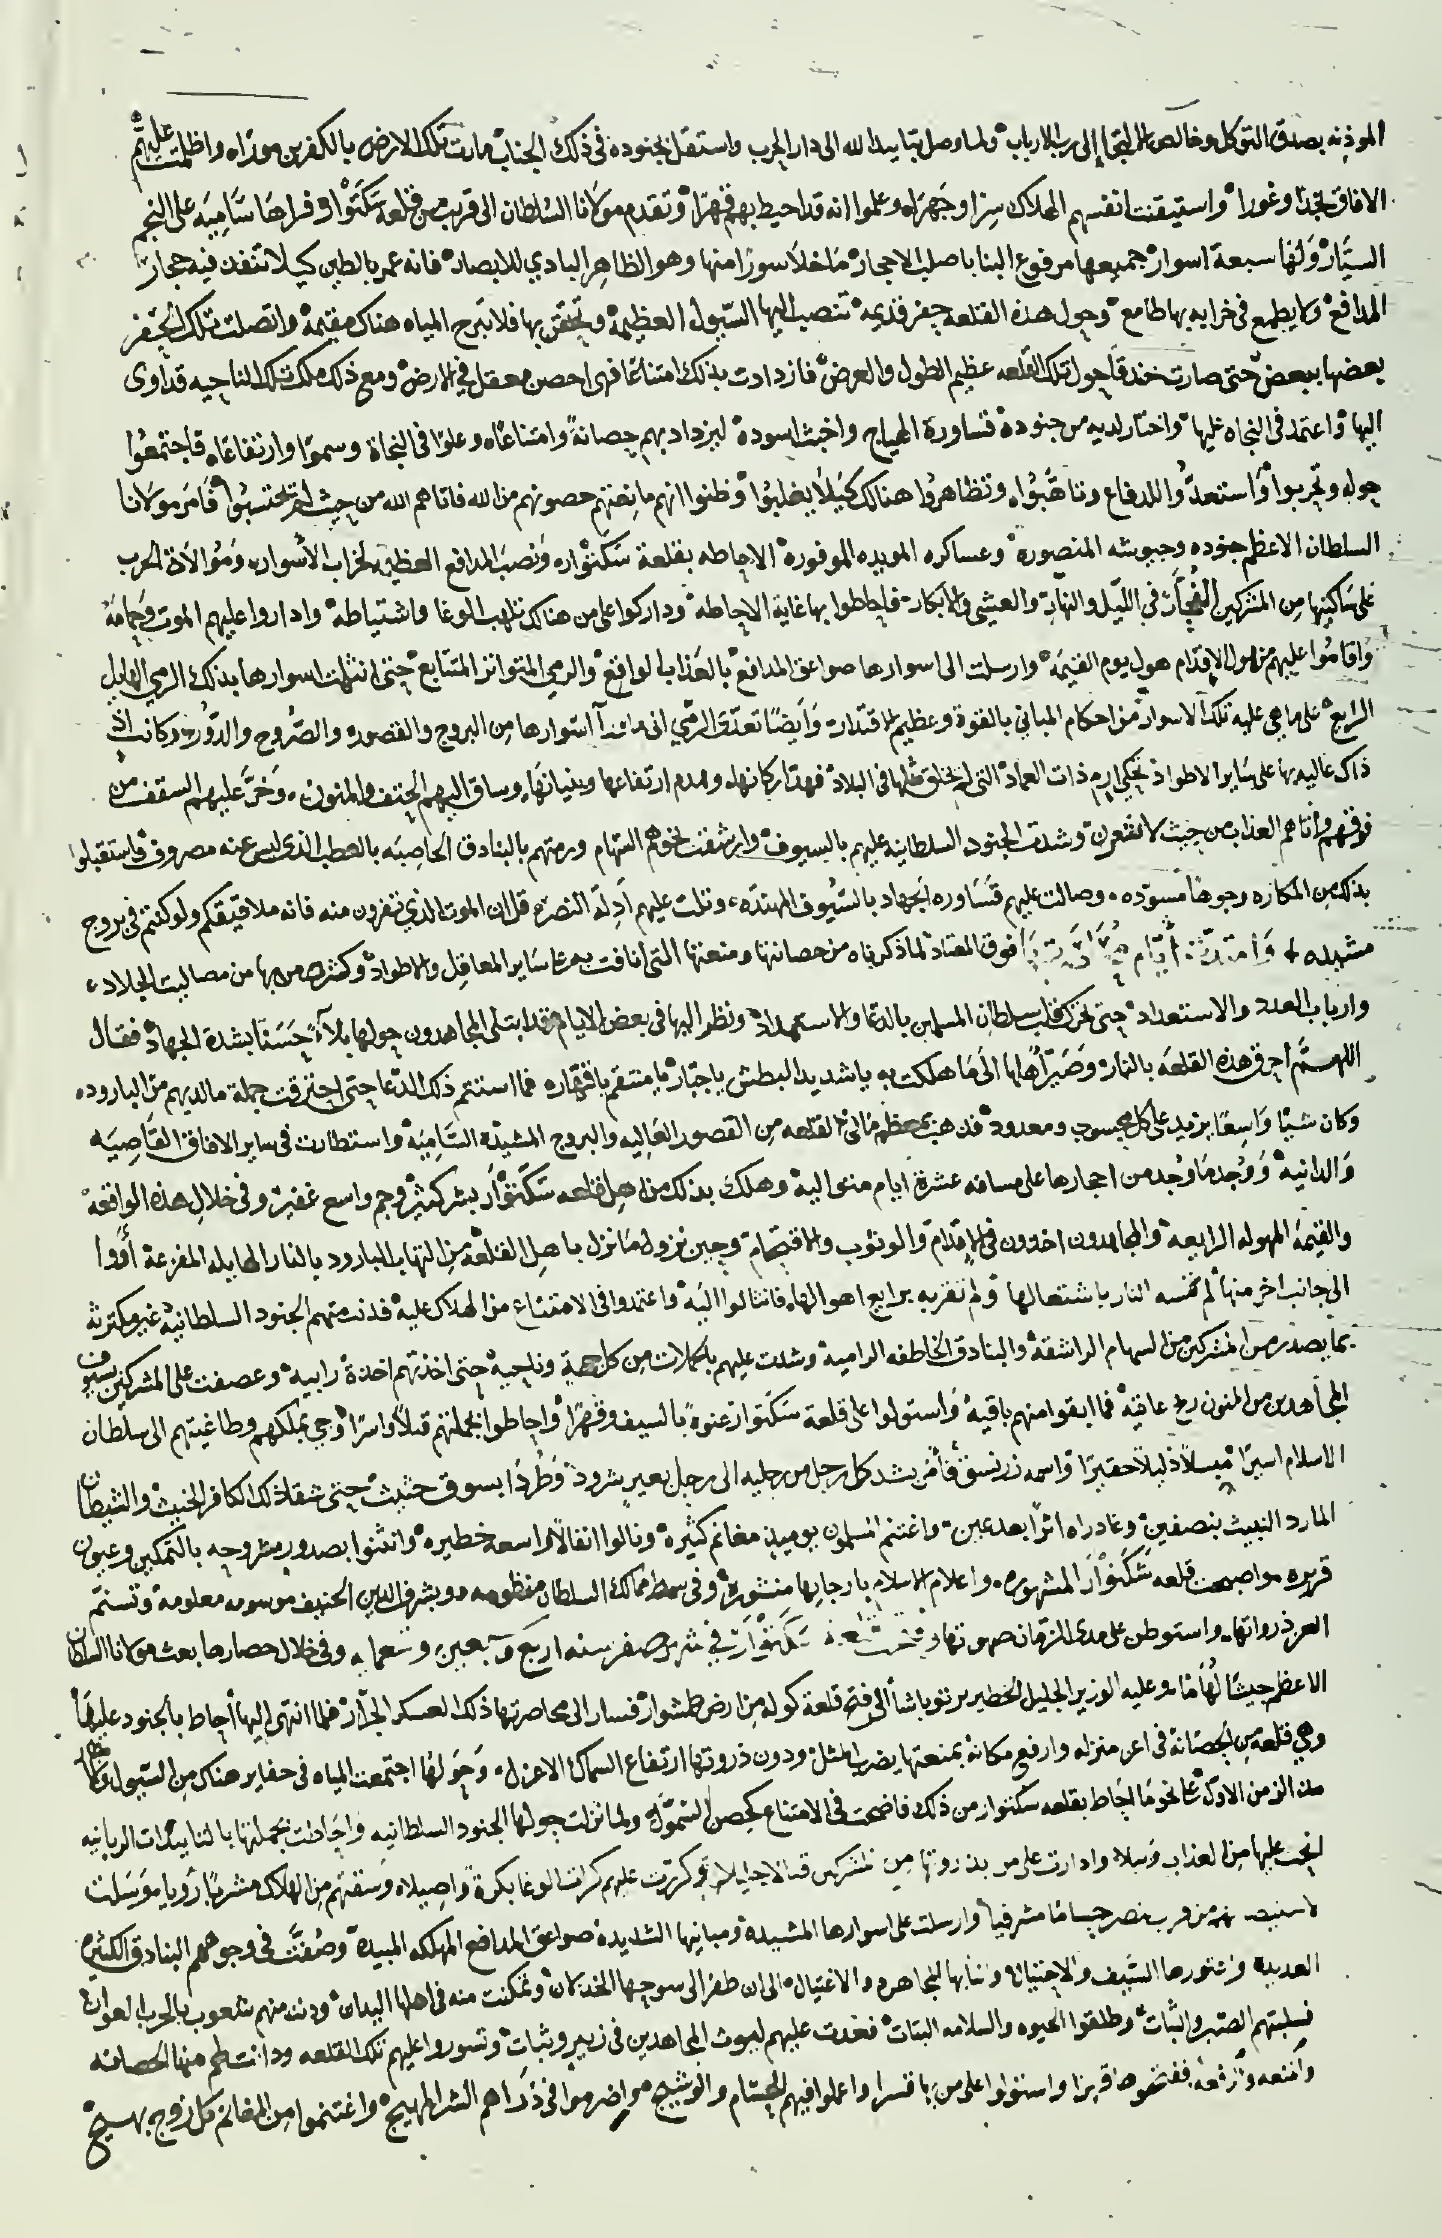 الموذنه بصدق التوكل وخالص الالتجاء إلى رب الارباب ولما وصل بتاييد الله الى دار الحرب واستقل بجنوده في ذلك الجناب مارت تلك الارض بالكفرين موراه واظلمت عليهم
الافاق نجدا وغورا واستيقنت انفسهم الهلاك سرا وجهراه وعلموا انه قد احيط بهم قهرا وتقدم مولانا السلطان الى قريب من قلعة سكتوار فراها سامية على النجم
السيار ولها سبعة اسوار جميعها مرفوع البنا باصلب الاحجار ما خلا سورا منها وهو الظاهر البادي للابصار فانه عمر بالطين كيلا تنفذ فيه حجار
المدافع ولا يطمع في خرابه بها طامع وحول هذه القلعه حفر قديمه تنصب اليها السيول العظيمه وتحقن بها فلا تبرح المياه هناك مقيمة واتصلت تلك الحفر
بعضها ببعض حتى صارت خندقا حول تلك القلعه عظيم الطول والعرض فازدادت بذلك امتناعا فهي احصن معقل في الارض ومع ذلك ملك تلك الناحيه قد اوى
اليها واعتمد في النجاه عليها واختار لديه من جنوده قساورة الهياج واخبث اسوده ليزداد بهم حصانة وامتناعاه وعلوا في النجاة وسموا وارتفاعاه فاجتمعوا
حوله وتحربوا واستعدوا للدفاع وتاهبواه وتظاهروا هنالك كيلا يغلبوا وظنوا انهم مانعتهم حصونهم من الله فاتاهم الله من حيث لم يحتسبوا فامر مولانا
السلطان الاعظم جنوده وجيوشه المنصوره وعساكره المويده الموفوره الاحاطه بقلعة سكتواره ونصب المدافع العظيمه لخراب الاسواره وموالاة الحرب
على ساكنيها من المشركين الفجار في الليل والنهار والعشي والابكار فاحاطوا بها غاية الاحاطه وداركوا على من هنالك تلهب الوغا واشتياطه واداروا عليهم الموت وحمامه
واقاموا عليهم من هول الاقدام هول يوم القيمه وارسلت الى اسوارها صواعق المدافع بالعذاب الواقع والرمي المتواتر المتتابع حتى انثلمت اسوارها بذلك الرمي الهايل
الرايع على ما هي عليه تلك الاسوار من احكام المباني بالقوة وعظيم الاقتدار وايضا تعدى الرمي الى ما عدا اسوارها من البروج والقصور والصروح والدور وكانت اذ
ذاك عاليه بها على ساير الاطواد تحكي ارم ذات العماد التي لم يخلق مثلها في البلاد فهد اركانها وهدم ارتفاعها وبنيانها وساق اليهم الحتف والمنون وخر عليهم السقف من
فوقهم واتاهم العذاب من حيث لا يشعرون وشدت الجنود السلطانيه عليهم بالسيوف وارشقت نحوهم السهام ورمتهم بالبنادق الحاصبه بالعطب الذي ليس عنه مصروف فاستقبلوا
بذلك من المكاره وجوها مسوده وصالت عليهم قساوره الجهاد بالسيوف المهنده وتلت عليهم ادلة النصره قل ان الموت الذي تفرون منه فانه ملاقيكم ولو كنتم في بروج
مشيده وامتدت ايام فوق المعتاد لما ذكرناه من حصانتها ومنعتها التي انافت بهما على ساير المعاقل والاطواد وكثرة من بها من مصاليت الجلاد
وارباب العدد والاستعداد حتى تحرك قلب سلطان المسلمين بالدعا والاستمداد ونظر اليها في بعض الايام وقد ابتلى المجاهدون حولها بلاء حسنا بشدة الجهاد فقال
اللهم احرق هذه القلعه بالنار وصير اهلها الى ما هلكت به يا شديد البطش يا جبار يا منتقم يا قهاره فما استتم ذلك الدعا حتى احترقت جملة ما لديهم من الباروده
وكان شيا واسعا يزيد على كل محسوب ومعدود فذهبت معظم ما في القلعه من القصور العاليه والبروج المشيده الساميه واستطارت في ساير الافاق القاصيه
والدانيه ووجد ما وجد من احجارها على مسافه عشرة ايام متواليه وهلك بذلك من اهل قلعه سكتوار بشر كثير وجم واسع غفير وفي خلال هذه الواقعه
والقيمة المهوله الرايعه والمجاهدون اخذون في الاقدام والوثوب والاقتحام وحين نزول ما نزل باهل القلعة من التهاب البارود بالنار الهايله المفزعة أووا
الى جانب اخر منها لم تمسه النار باشتعالها ولم تقر به برايع اهوالها فانثالوا اليه واعتمدوا في الامتناع من الهلاك عليه فدنت منهم الجنود السلطانيه غير مكترثه
بما يصدر من المشركين من السهام الراشقة والبنادق الخاطفه الراميه وشدت عليهم بالحملات من كل جهة وناحيه حتى اخذتهم اخذة رابيه وعصفت على المشركين بسيوف
المجاهدين من المنون ريح عاتيه فما ابقوا منهم باقيه واستولوا على قلعة سكتوار عنوة بالسيف وقهرا واحاطوا بجملتهم قتلا واسرا وجي بملكهم وطاغيتهم الى سلطان
الاسلام اسيرا مبسلا ذليلا حقيرا واسمه زرنسق فامر بشد كل رجل من رجليه الى رجل بعير شرود وطردا بسوق حثيث حتى شقا ذلك الكافر الخبيث والشيطان
المارد النبيث بنصفين وغادراه اثرا بعد عين واغتنم المسلمون يوميذ مغانم كثيره ونالوا انفالا واسعه خطيره وانثنوا بصدور مشروحه بالتمكين وعيون
قريره واصبحت قلعه سكتوار المشهوره واعلام الاسلام بارجايها منشوره وفي سمط ممالك السلطان منظومه وبشرف الدين الحنيف موسومه معلومه وتسنم
العز ذرواتها واستوطن على مدى الزمان صهواتها وفتحت قلعة سكتوار في شهر صفر سنه اربع وسبعين وتسعمايه وفي خلال حصارها بعث مولانا السلطان
الاعظم جيشا لهاما وعليه الوزير الجليل الخطير برتو باشا الى فتح قلعة كوله من ارض طمشوار فسار الى محاصرتها ذلك العسكر الجرار فلما انتهى اليها احاط بالجنود عليها
وهي قلعه من الحصانة في اعز منزله وارفع مكانه بمنعتها يضرب المثل ودون ذروتها ارتفاع السماك الاعزل وحولها اجتمعت المياه في حفاير هناك من السيول
منذ الزمن الاول على نحو ما احاط بقلعه سكتوار من ذلك فاضحت في الامتناع كحصن السموال ولما نزلت حولها الجنود السلطانيه واحاطت بجملتها بالتاييدات الربانيه
انحت عليها من العذاب وبيلا وادارت على من بذروتها من المشركين وكررت عليهم كرات الوغا بكرة واصيلاه وسقتهم من الهلاك مشربا رويا وسلت
من قرب نصر حساما مشرفيا وارسلت على اسوارها المشيده ومبانيها الشديده صواعق المدافع المهلكه المبيده وصفت في وجوههم البنادق الكثيره
العديده السيف والاحتيال وانتابها المجاهره والاغتيال الى ان طفر الى سوحها الخذلان وتمكنت منه في اهلها اليدان ودنت منهم شعوب بالحرب العوان
فسلبتهم الصبر والثبات وطلقوا الحيوه والسلامه البتات فغدت عليهم ليوث المجاهدين في زيير وثبات وتسوروا عليهم تلك القلعه ودانت لهم منها الحصانه
والمنعه والرفعه ففتحوها قريبا واستولوا على من بها قسرا واعملوا فيهم الحسام والوشيج واضرموا في ذراهم الشر المهيج واغتنموا من المغانم كل زوج بهيج